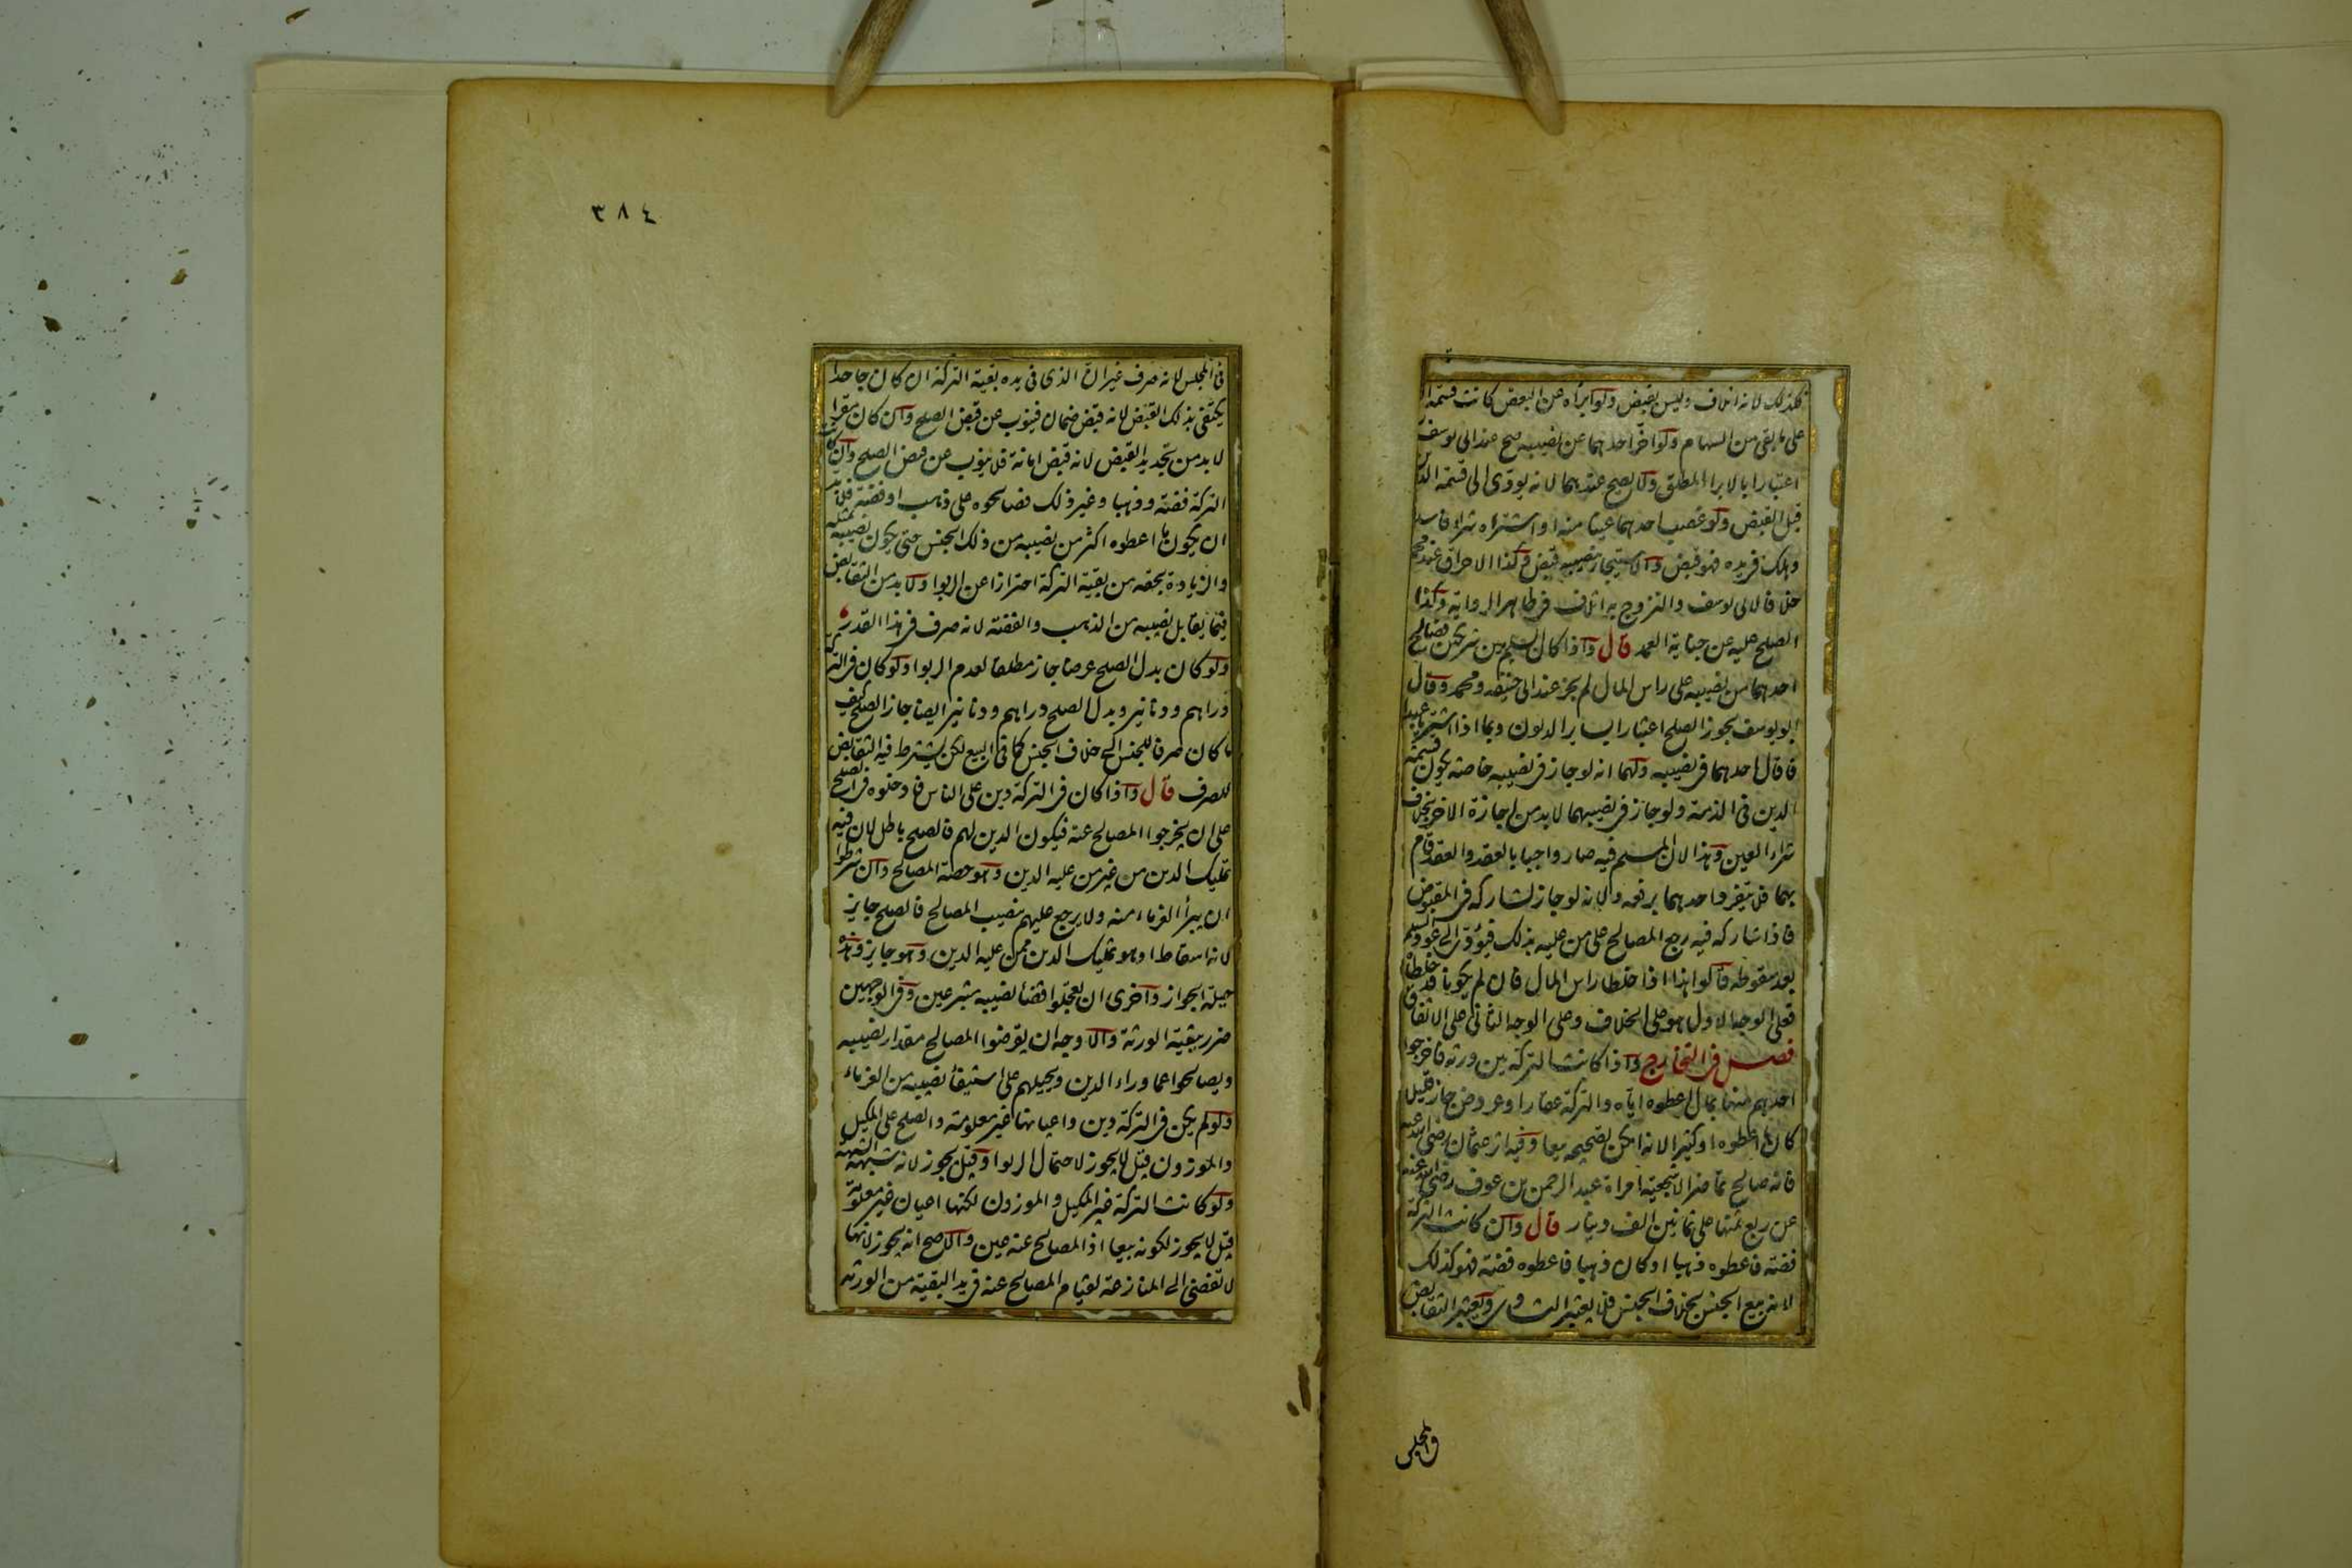 كذلك لانه اتلاف وليس بقبض ولو ابرأه عن البعض كانت قسمة ال
على ما بقى من السهام ولو اخر احدهما عن نصيبه صح عند ابى يوسف
اعتبارا بالابراء المطلق ولا يصح عندهما لانه يؤدى الى قسمة الدين
قبل القبض ولو غصب احدهما عينا منه او اشتراه شراء فاسدا
وهلك فى يده فهو قبض والاستيجار بنصيبه قبض وكذا الاحراق عند محمد
خلافا لابى يوسف والتزوج به اتلاف فى ظاهر الرواية وكذا
الصلح عليه عن جناية العمد قال واذا كان السلم بين شريكين فصالح
احدهما من نصيبه على راس المال لم يجز عند ابى حنيفة ومحمد وقال
ابو يوسف يجوز الصلح اعتبارا بساير الديون وبما اذا اشتريا عبدا
فاقال احدهما فى نصيبه ولهما انه لو جاز فى نصيبه خاصة يكون قسمة
الدين فى الذمة ولو جاز فى نصيبهما لابد من اجازة الاخر بخلاف
شراء العين وهذا لان المسلم فيه صار واجبا بالعقد والعقد قام
بهما فلا يتفرد احدهما برفعه ولانه لو جاز لشاركه فى المقبوض
فاذا شاركه فيه رجع المصالح على من عليه بذلك فيؤدى الى عود السلم
بعد سقوطه قالوا هذا اذا خلطا راس المال فان لم يكونا قد خلطاه
فعلى الوجه الاول هو على الخلاف وعلى الوجه الثانى على الاتفاق
فصل فى التخارج واذا كانت التركة بين ورثة فاخرجوا
احدهم منها بمال اعطوه اياه والتركة عقار او عروض جاز قليلا
كان ما اعطوه او كثيرا لانه امكن تصحيحه بيعا وفيه اثر عثمان رضى الله عنه
فانه صالح تماضر الاشجعية امراة عبد الرحمن بن عوف رضى الله عنه
عن ربع ثمنها على ثمانين الف دينار قال وان كانت التركة
فضة فاعطوه ذهبا او كان ذهبا فاعطوه فضة فهو كذلك
لانه بيع الجنس بخلاف الجنس فلا يعتبر التساوى ويعتبر التقابض
فى المجلس
٣٨٤
فى المجلس لانه صرف غير ان الذى فى يده بقية التركة ان كان جاحدا
يكتفى بذلك القبض لانه قبض ضمان فينوب عن قبض الصلح وان كان مقرا
لابد من تجديد القبض لانه قبض امانة فلا ينوب عن قبض الصلح وان كانت
التركة فضة وذهبا وغير ذلك فصالحوه على ذهب او فضة فلابد
ان يكون ما اعطوه اكثر من نصيبه من ذلك الجنس حتى يكون نصيبه بمثله
والزيادة بحقه من بقية التركة احترازا عن الربوا ولابد من التقابض
فيما يقابل نصيبه من الذهب والفضة لانه صرف فى هذا القدر
ولو كان بدل الصلح عرضا جاز مطلقا لعدم الربوا ولو كان فى التركة
دراهم ودنانير وبدل الصلح دراهم ودنانير ايضا جاز الصلح كيف
ما كان صرفا للجنس الى خلاف الجنس كما فى البيع لكن يشترط فيه التقابض
للصرف قال واذا كان فى التركة دين على الناس فادخلوه فى الصلح
على ان يخرجوا المصالح عنه فيكون الدين لهم فالصلح باطل لان فيه
تمليك الدين من غير من عليه الدين وهو حصة المصالح وان شرطوا
ان يبرأ الغرماء منه ولا يرجع عليهم بنصيب المصالح فالصلح جايز
لانه اسقاط او هو تمليك الدين ممن عليه الدين وهو جايز وهذه
حيلة الجواز واخرى ان يعجلوا قضاء نصيبه متبرعين وفى الوجهين
ضرر ببقية الورثة والاوجه ان يقرضوا المصالح مقدار نصيبه
ويصالحوا عما وراء الدين ويحيلهم على استيفاء نصيبه من الغرماء
ولو لم يكن فى التركة دين واعيانها غير معلومة والصلح على المكيل
والموزون قيل لا يجوز لاحتمال الربوا وقيل يجوز لانه شبهة الشبهة
ولو كانت التركة غير المكيل والموزون لكنها اعيان غير معلومة
قيل لا يجوز لكونه بيعا اذ المصالح عنه عين والاصح انه يجوز لانها
لا تفضى الى المنازعة لقيام المصالح عنه فى يد البقية من الورثة